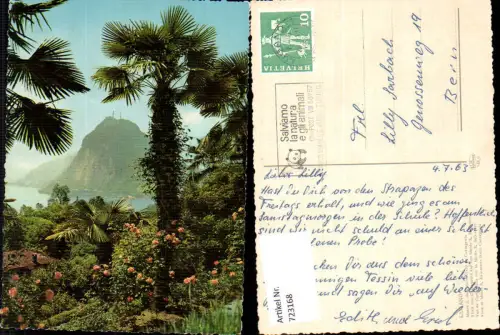 10
HELVETIA
Salviamo
la natura
e gli animali
Frl.
Lilly Sarbach
Genossenweg 19
Bern
4.7.63
Liebe Lilly
Hast Du Dich von den Strapazen des
Freitags erholt, und wie ging es am
Samstagmorgen in der Schule? Hoffentlich
sind wir nicht schuld an einer schlecht
Probe!
Dir aus dem schönen
Tessin viele liebe
und sagen Dir "auf Wieder-
Edith und
Artikel Nr.
723168